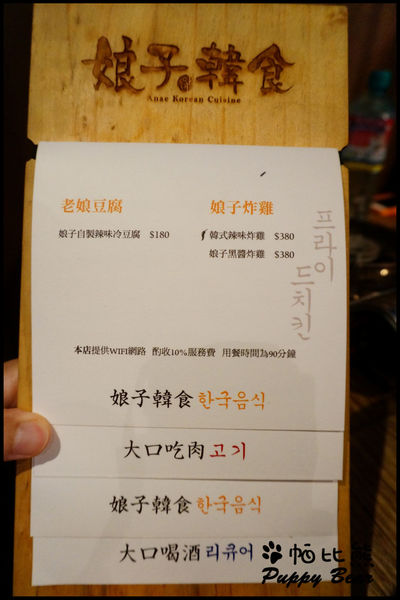 娘子韓食
Anae Korean Cuisine
老娘豆腐
娘子自製辣味冷豆腐 $180
娘子炸雞
韓式辣味炸雞 $380
娘子黑醬炸雞 $380
프라이드치킨
本店提供WIFI網路 酌收10%服務費 用餐時間為90分鐘
娘子韓食 한국음식
大口吃肉 고기
娘子韓食 한국음식
大口喝酒 리큐어
帕比熊
Puppy Bear